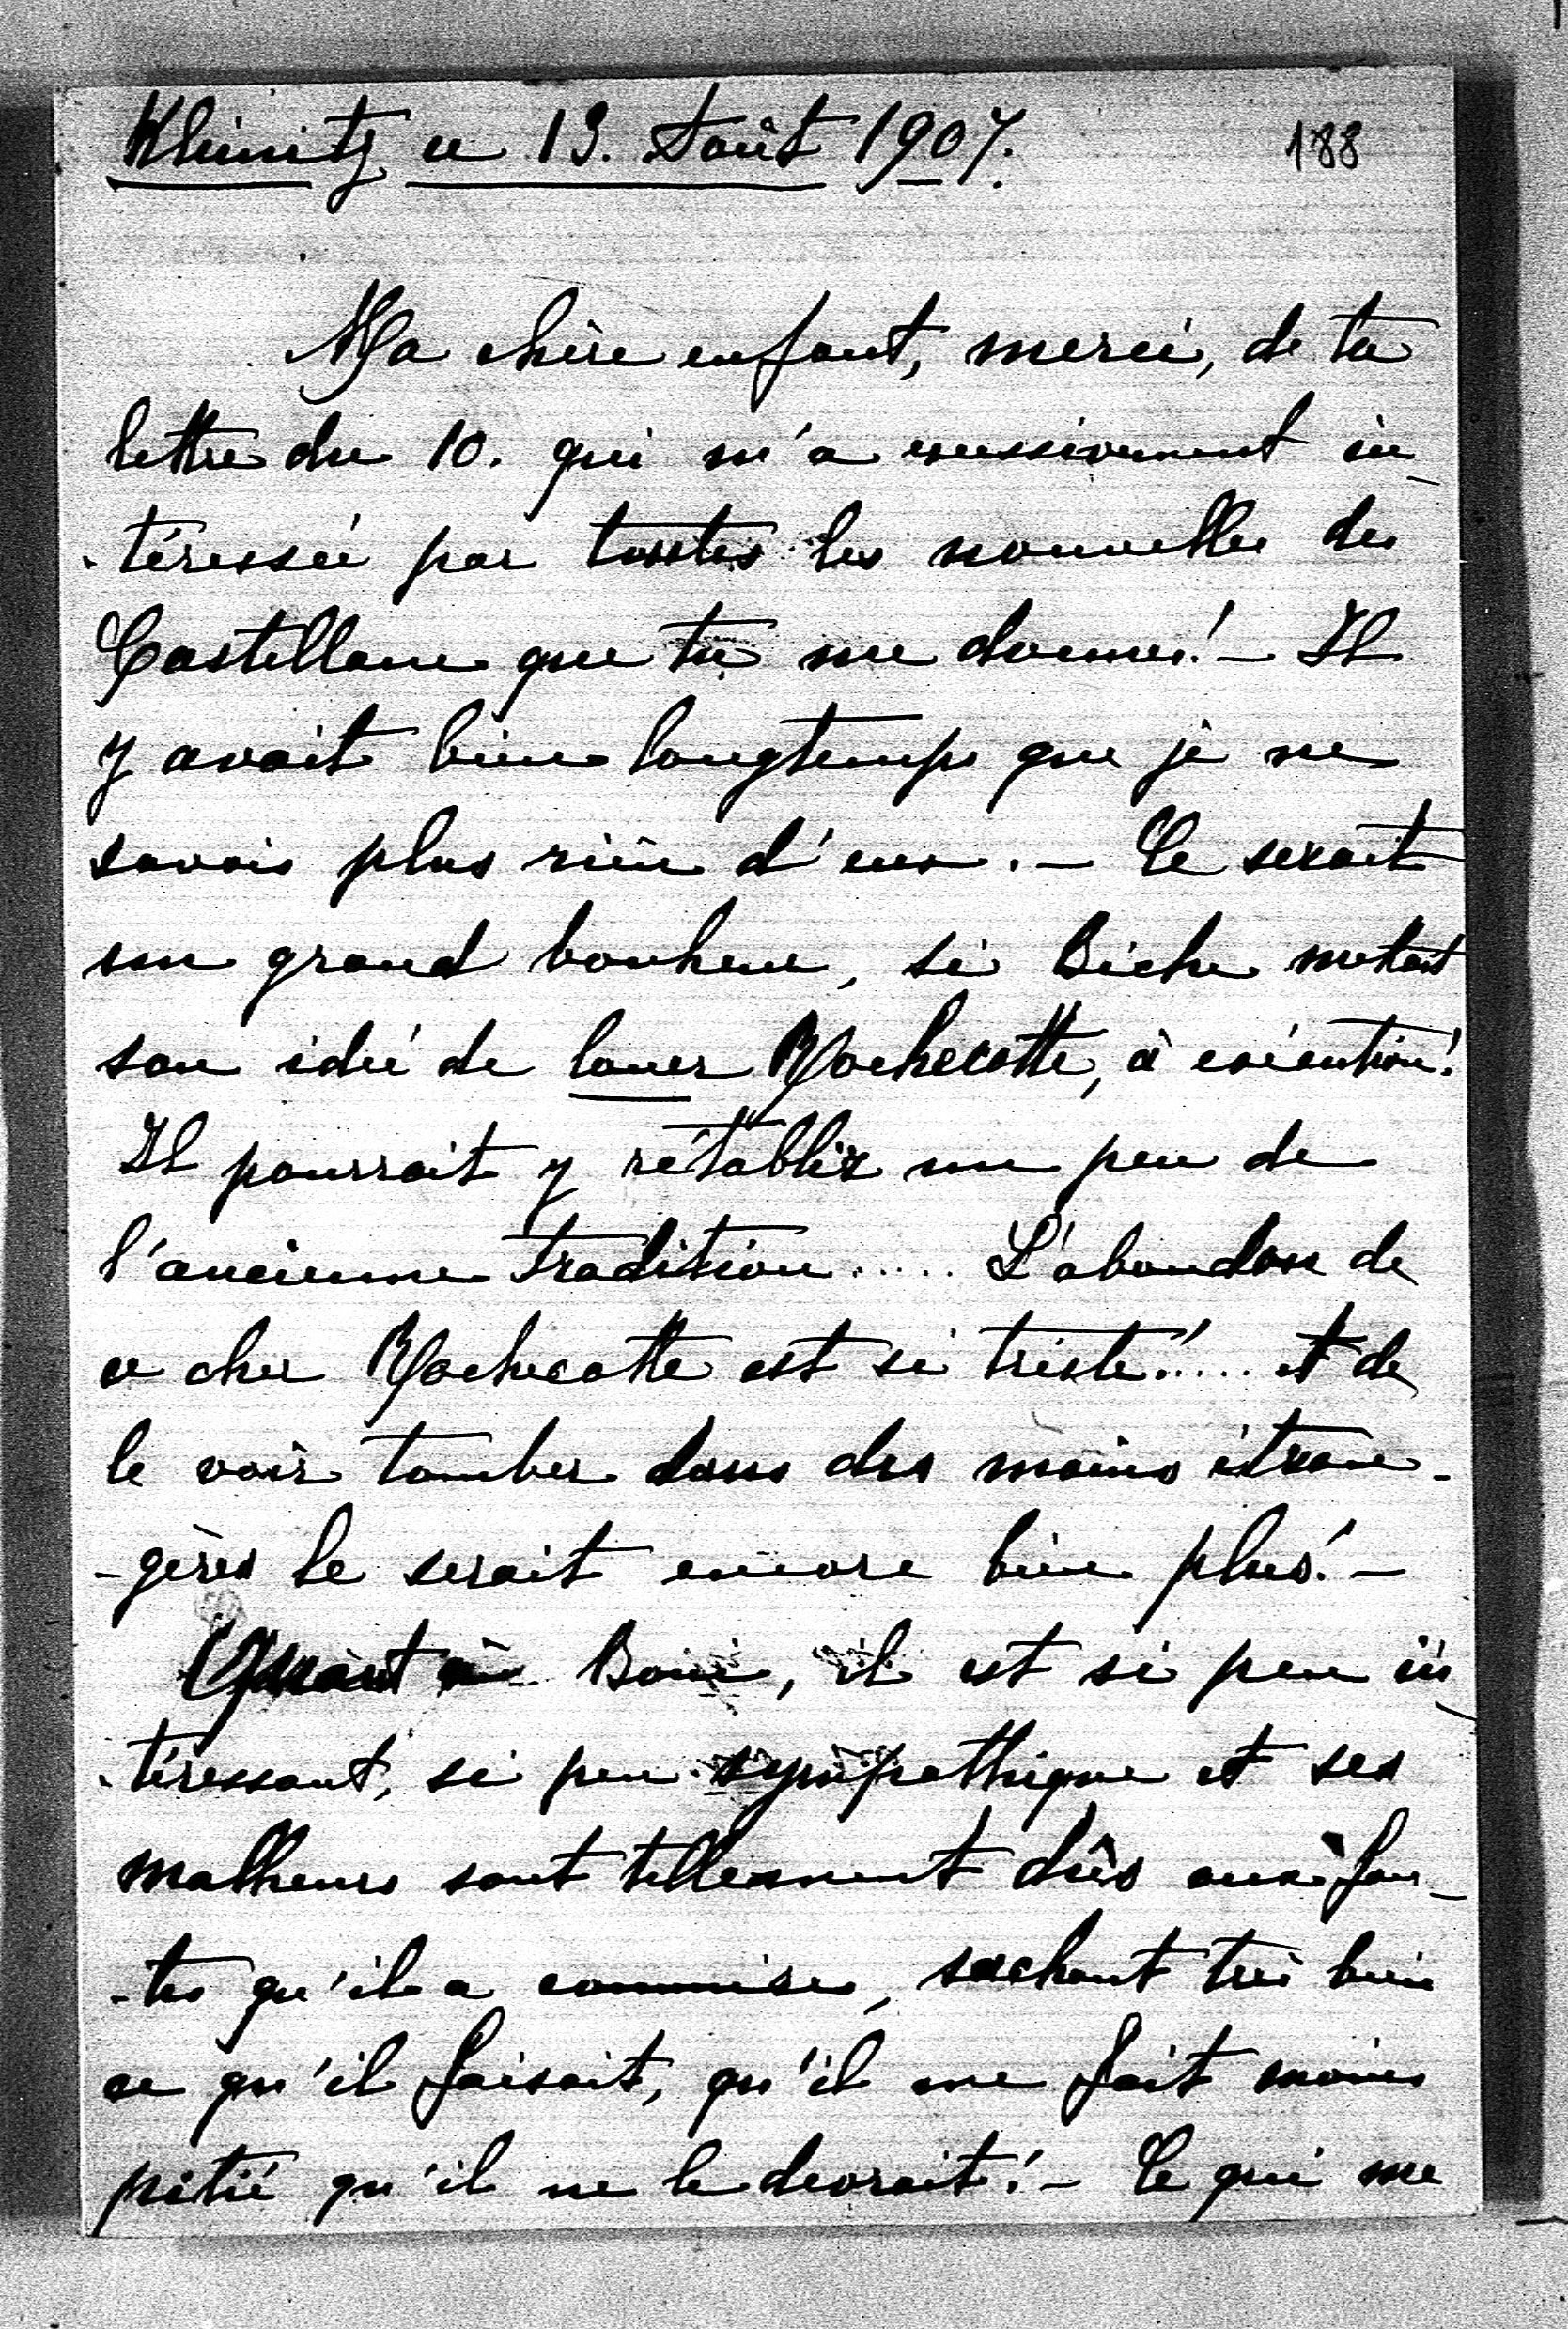 Kleinitz ce 13. Août 1907.
188
Ma chère enfant, merci, de ta
lettre du 10. qui m'a excessivement in-
-téressée par toutes les nouvelles des
Castellane que tu me donnes! - Il
y avait bien longtemps que je ne
savais plus rien d'eux. - Ce serait
un grand bonheur, si Biche mettait
son idée de louer Rochecotte, à exécution!
Il pourrait y rétablir un peu de
l'ancienne tradition ..... L'abandon de
ce cher Rochecotte est si triste! .... et de
le voir tomber dans des mains étran-
-gères le serait encore bien plus! -
Quant à Boni, il est si peu in-
-téressant, si peu sympathique et ses
malheurs sont tellement dûs aux fau-
-tes qu'il a commises, sachant très bien
ce qu'il faisait, qu'il me fait moins
pitié qu'il ne le devrait! - Ce qui me